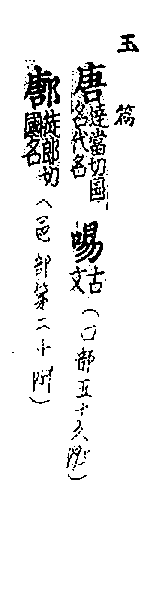 玉篇
唐達當切国名代名 啺古文(口部五十六附)
鄌徒郎切國名(邑部第二十附)